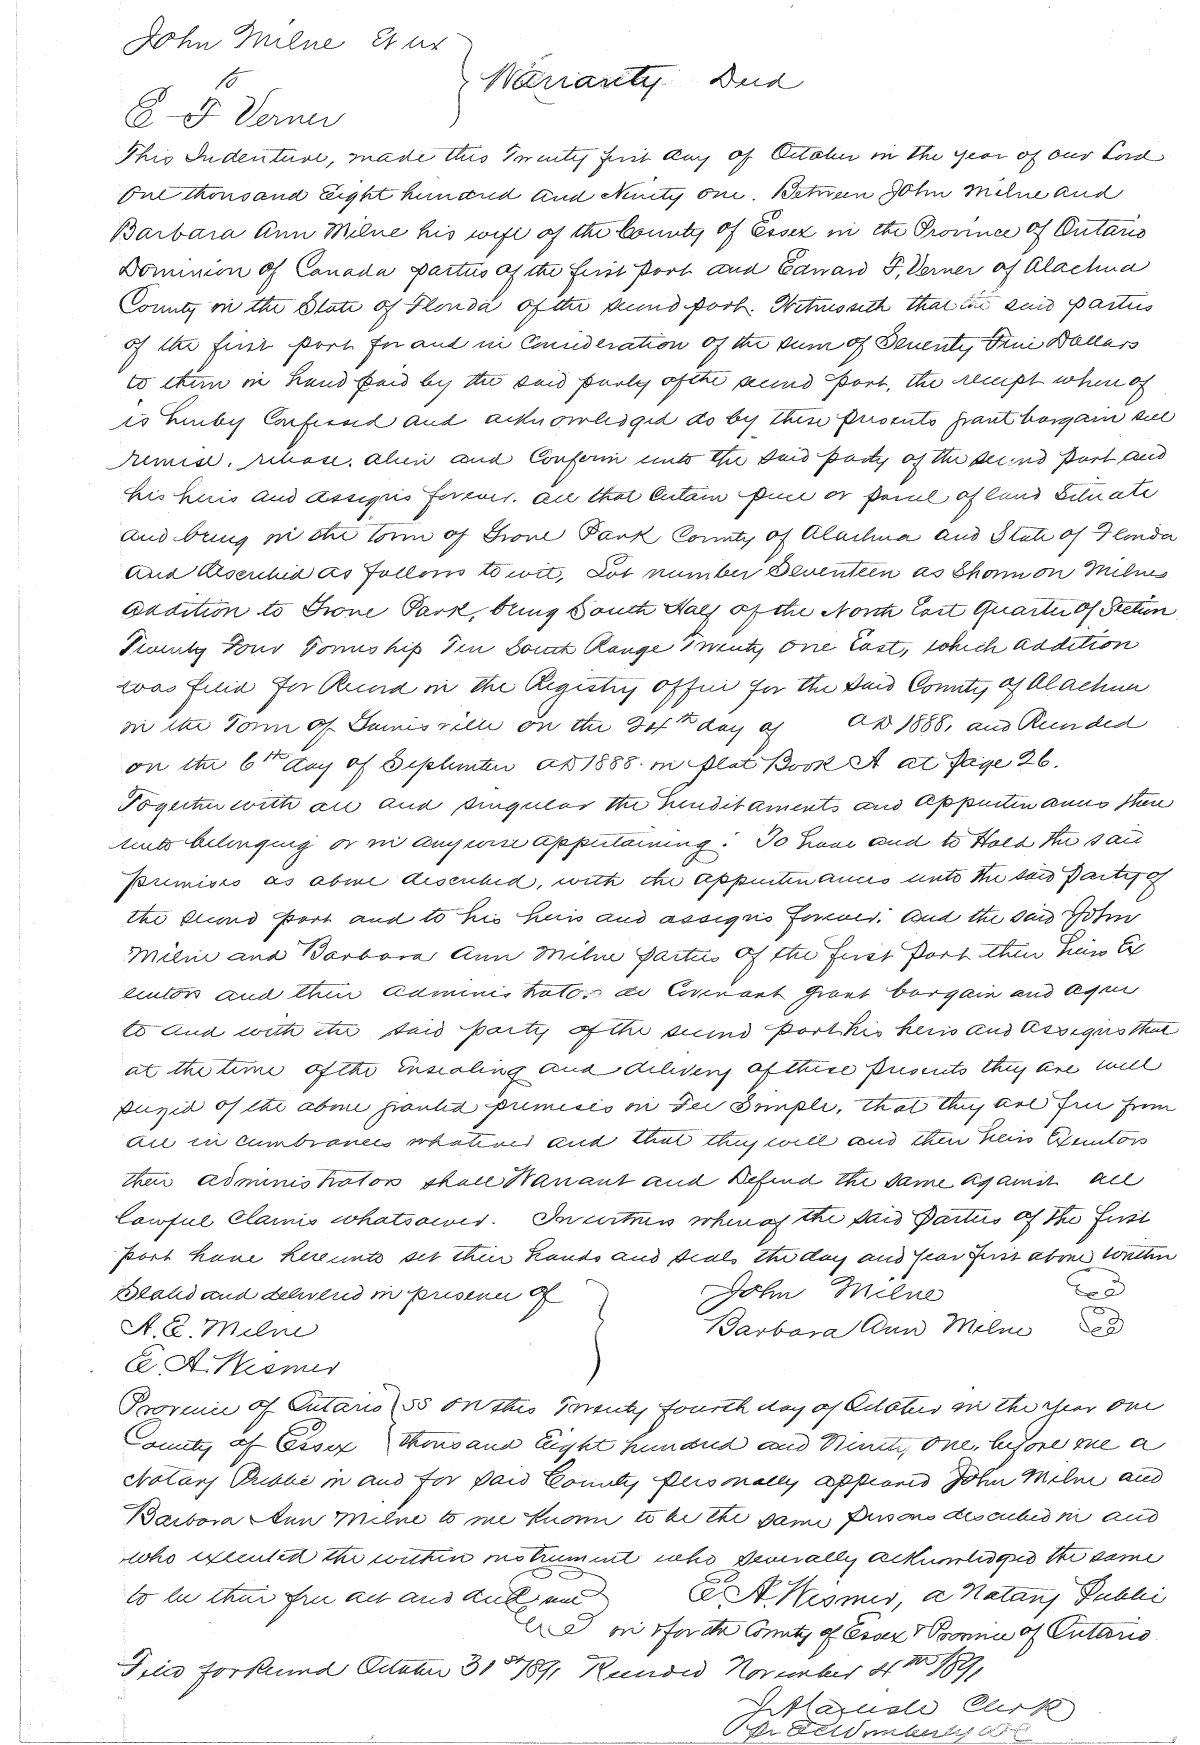 John Milne Et ux
to
Warranty Deed
E F Verner
This Indenture, made this Twenty first day of October in the year of our Lord
One thousand Eight hundred and Ninity one. Between John Milne and
Barbara Ann Milne his wife of the County of Essex in the Province of Ontario
Dominion of Canada parties of the first part and Edward F. Verner of Alachua
County in the State of Florida of the second part. Witnesseth that the said parties
of the first part for and in consideration of the sum of Seventy Five Dollars
to them in hand paid by the said party of the second part, the receipt where of
is hereby Confessed and acknowledged do by these presents grant bargain sell
remise, release, alien and Confirm unto the said party of the second part and
his heirs and assigns forever. all that Certain piece or parcel of land Situate
and being in the town of Grove Park County of Alachua and State of Florida
and described as follows to wit, Lot number Seventeen as Shown on Milnes
addition to Grove Park, being South Half of the North East Quarter of Section
Twenty Four Township Ten South Range Twenty One East, which addition
was filed for Record in the Registry office for the said County of Alachua
in the Town of Gainesville on the 24th day of AD 1888, and Recorded
on the 6th day of September AD 1888 in plat Book A at page 26.
Together with all and singular the hereditaments and appurtenances there
unto belonging or in anywise appertaining: To have and to Hold the said
premises as above described, with the appurtenances unto the said Party of
the second part and to his heirs and assigns forever. And the said John
Milne and Barbara Ann Milne parties of the first part their heirs Ex
ecutors and their administrators do Covenant grant bargain and agree
to and with the said party of the second part his heirs and assigns that
at the time of the Ensealing and delivery of these presents they are well
seized of the above granted premises in Fee Simple, that they are free from
all in cumbrances whatever and that they will and their heirs Executors
their administrators shall Warrant and Defend the same against all
lawful Claims whatsoever. In witness where of the said Parties of the first
part have hereunto set their hands and seals the day and year first above written
Sealed and delivered in presence of John Milne Seal
A. E. Milne Barbara Ann Milne Seal
E. A. Wismer
Province of Ontario SS On this Twenty fourth day of October in the year one
County of Essex thousand Eight hundred and Ninety One. before me a
Notary Public in and for said County personally appeared John Milne and
Barbara Ann Milne to me Known to be the same persons described in and
who executed the within instrument who severally acknowledged the same
to be their free act and deed E. A. Wismer, a Notary Public
Seal in & for the County of Essex & Province of Ontario
Filed for Record October 31st 1891 Recorded November 4th 1891
Clerk